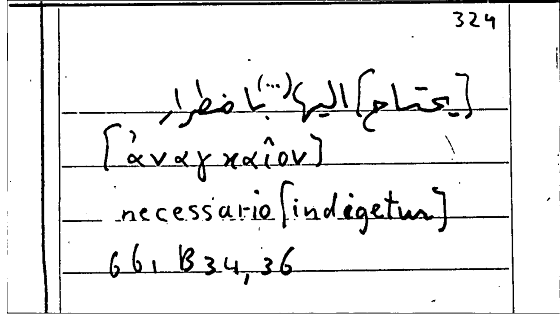 324
[يحتاج] اليها (...) باضطرار
[ἀναγκαῖον]
necessario [indigetur]
661 B 34, 36